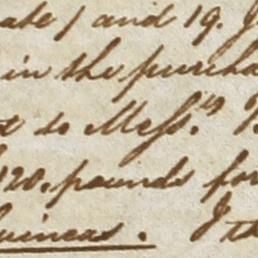 ate 1 and 19. J
in the purcha
t to Messrs
120. pounds for
uineas. I th